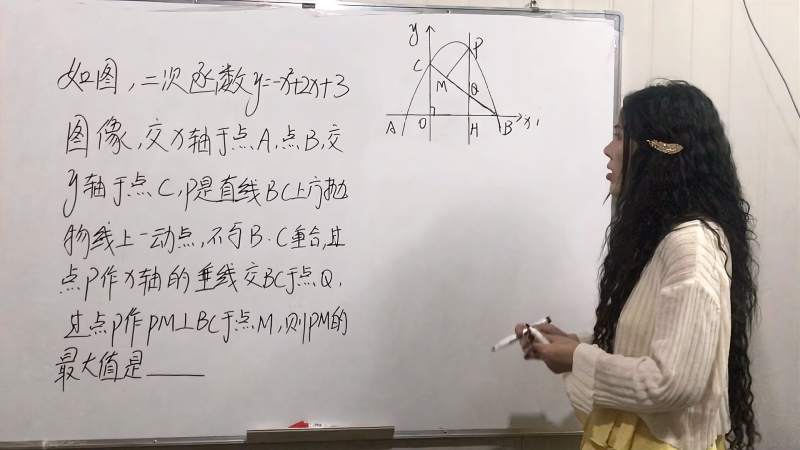 如图,二次函数y=-x²+2x+3
图像,交x轴于点A,点B,交
y轴于点C,P是直线BC上方抛
物线上一动点,不与B·C重合,过
点P作x轴的垂线交BC于点Q,
过点P作PM⊥BC于点M,则PM的
最大值是____
y
P
C
M
Q
A O H B x